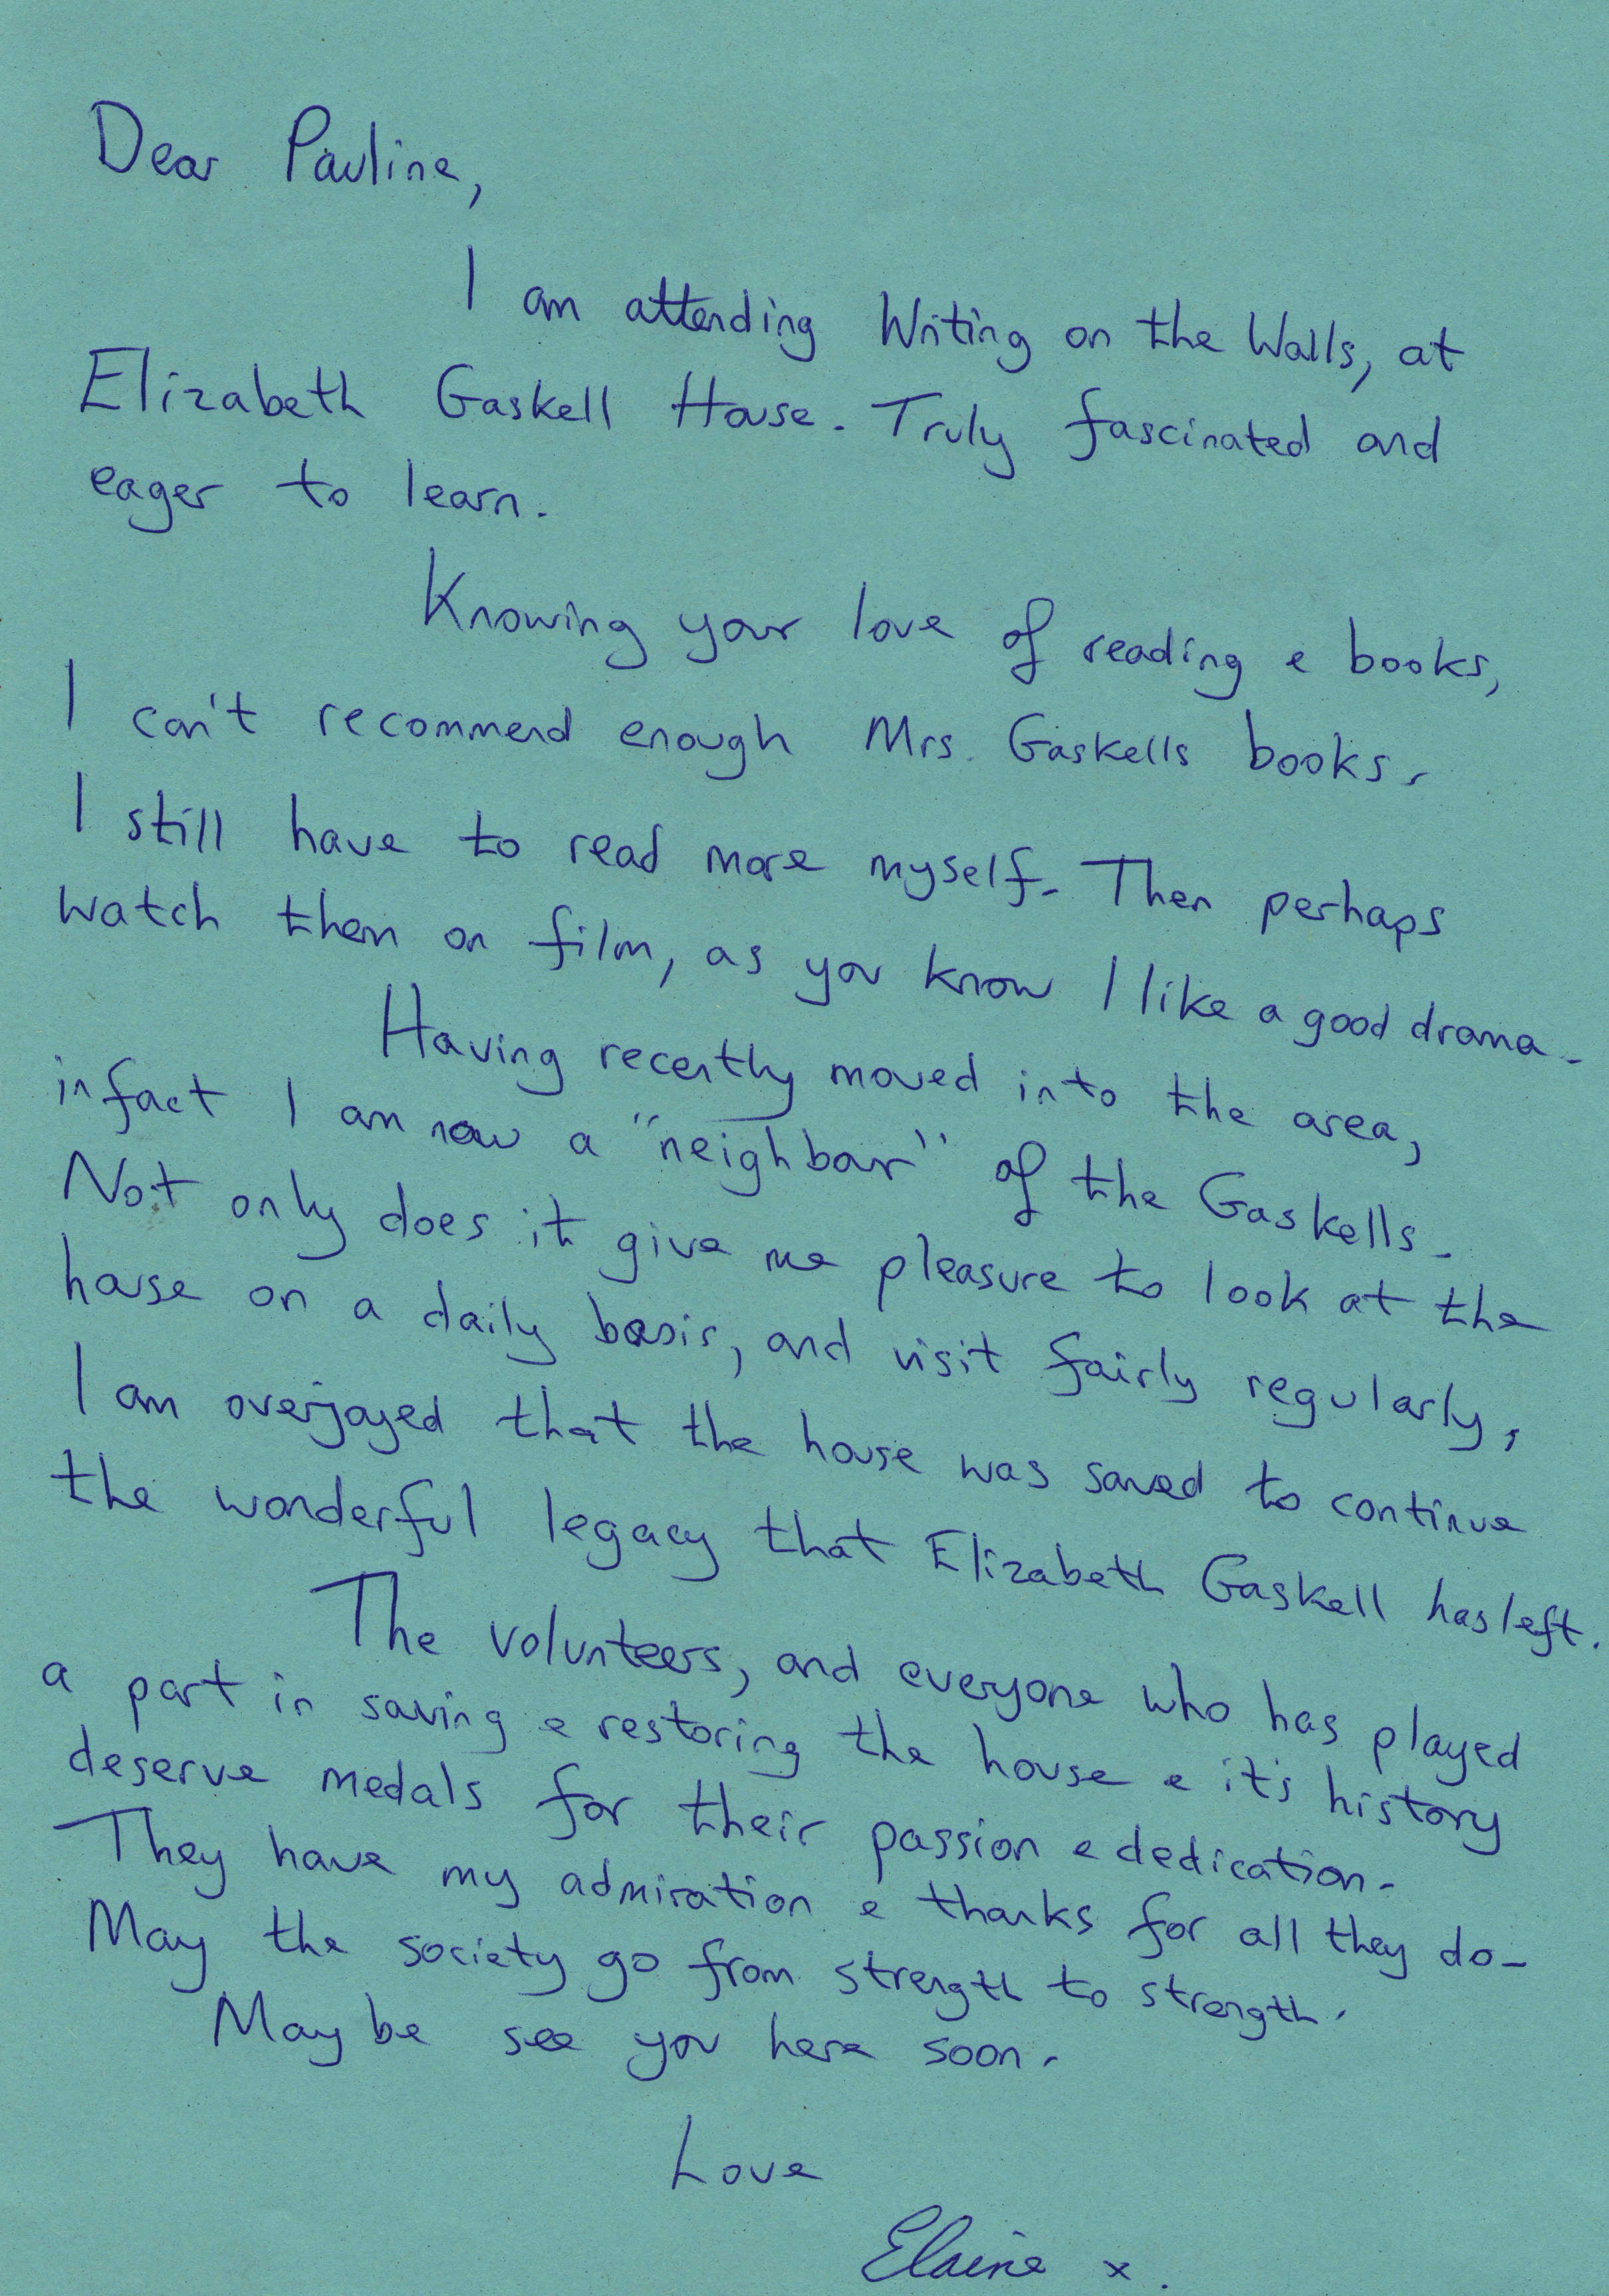 Dear Pauline,
I am attending Writing on the Walls, at
Elizabeth Gaskell House. Truly fascinated and
eager to learn.
Knowing your love of reading e books,
I can't recommend enough Mrs. Gaskells books.
I still have to read more myself. Then perhaps
watch them on film, as you know I like a good drama.
Having recently moved into the area,
infact I am now a "neighbour" of the Gaskells.
Not only does it give me pleasure to look at the
house on a daily basis, and visit fairly regularly,
I am overjoyed that the house was saved to continue
the wonderful legacy that Elizabeth Gaskell has left.
The volunteers, and everyone who has played
a part in saving e restoring the house e it's history
deserve medals for their passion e dedication.
They have my admiration e thanks for all they do.
May the society go from strength to strength.
May be see you here soon.
Love
Elaine x.